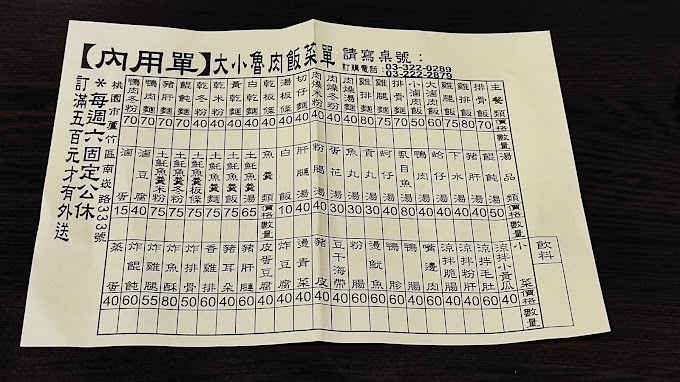 【內用單】大小魯肉飯菜單 請寫桌號：
訂購電話：03-322-0289
03-222-2879
主餐類 價格 數量
排骨飯 70
雞腿飯 80
雞排飯 75
大滷肉飯 60
小滷肉飯 50
排骨麵 70
雞排麵 75
雞腿麵 80
肉燥湯麵 40
肉燥冬粉 40
肉燥米粉 40
切仔麵 40
湯板條 40
乾板條 40
白乾麵 40
黃乾麵 40
乾米粉 40
乾冬粉 40
餛飩麵 70
豬肝麵 70
鴨肉麵 70
鴨肉冬粉 70
湯品類 價格 數量
餛飩湯 50
豬肝湯 40
下水湯 40
蛤仔湯 40
鴨肉湯 40
虱目魚湯 80
貢丸湯 30
魚丸湯 30
蛋花湯 30
粉腸湯 40
肝腱湯 40
白飯 10
魚羹類 價格 數量
土魠魚羹 65
土魠魚羹麵 75
土魠魚羹板條 75
土魠魚羹冬粉 75
土魠魚羹米粉 75
滷豆腐 40
滷蛋 15
飲料
小菜 價格 數量
涼拌小黃瓜 40
涼拌毛肚 60
涼拌粉肝 60
涼拌脆腸 60
嘴邊肉
鴨腸
鴨胗
燙魷魚
粉腸
豆干海帶 40
豬皮 40
燙青菜 40
炸豆腐 40
皮蛋豆腐 40
豬肝腱 60
豬耳朵 40
香雞排 60
炸排骨 50
炸魚酥 80
炸雞腿 55
炸餛飩 60
菜蛋 40
桃園市蘆竹區南崁路333號
＊每週六固定公休
訂滿五百元才有外送